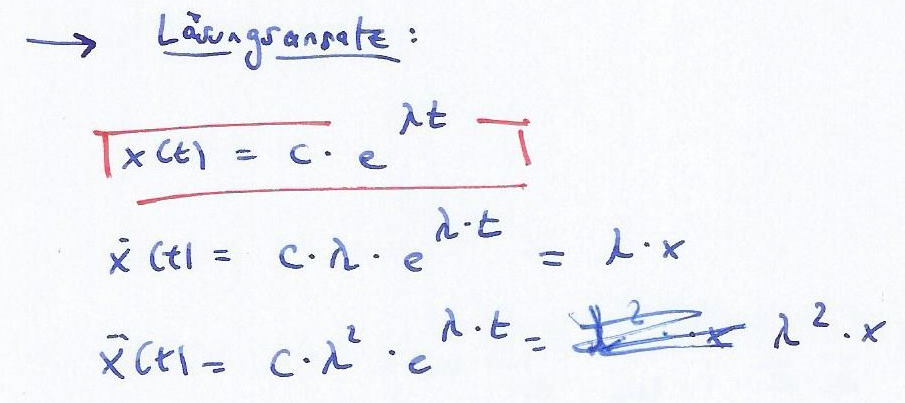 → Lösungsansatz:
x(t) = c · e^{λt}
ẋ(t) = c · λ · e^{λ·t} = λ · x
ẍ(t) = c · λ² · e^{λ·t} = λ² · x